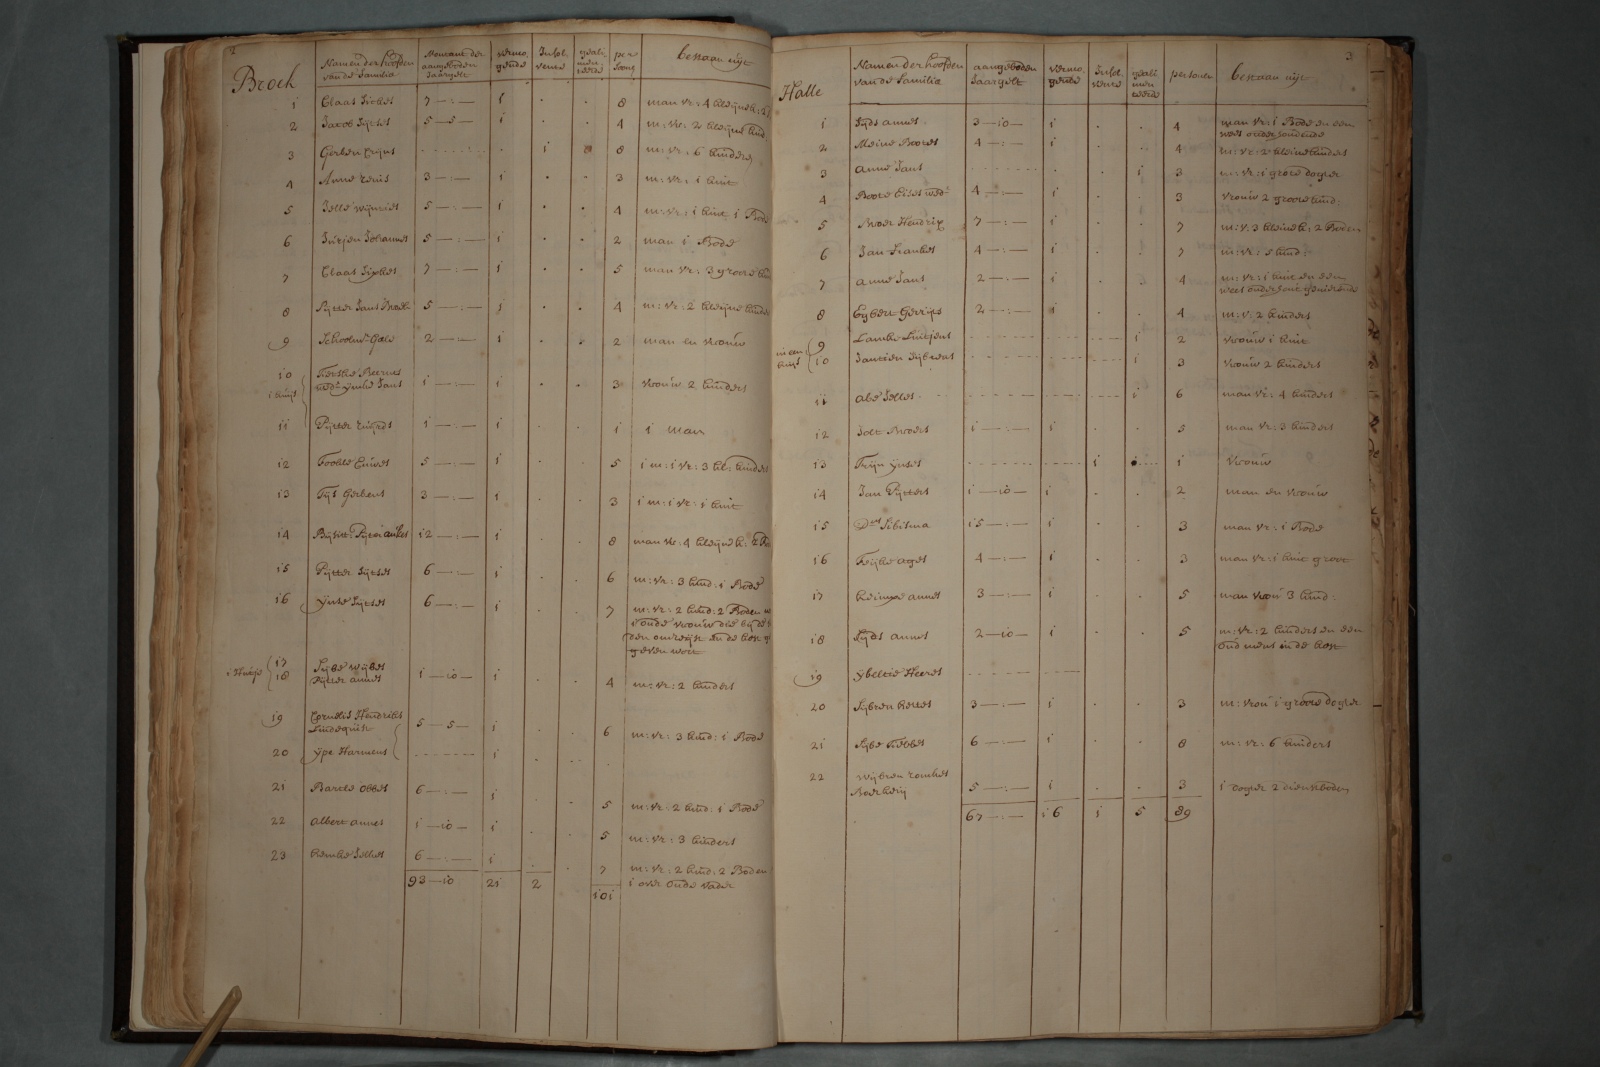 2
Broek
Namen der hoofden van de familie
Montant der aangeboden Jaargelt
vermogende
Insolvente
gealimenteerde
persoons
bestaan uijt
1 Claas 7 —:— 1 . . 8 man vr: 4 kleijne k:
2 Jacob Sijtses 5 —5— 1 . . 4 m: vr: 2 kleijne kind
3 Gerben . 1 8 m: vr: 6 kinders
4 Anne 3 —:— 1 . . 3 m: vr: 1 kint
5 Jelle 5 —:— 1 . . 4 m: vr: 1 kint 1 Bode
6 Jurjen Johannes 5 —:— 1 . . 2 man 1 Bode
7 Claas 7 —:— 1 . . 5 man vr: 3 groote
8 Pijtter Jans 5 —:— 1 . . 4 m: vr: 2 kleijne kinder
9 2 —:— 1 . . 2 man en vrouw
10
1 huijs
wed: Jans 1 —:— 1 . . 3 vrouw 2 kinders
11 Pijtter 1 —:— 1 . . 1 1 man
12 Fookle 5 —:— 1 . . 5 1 m: 1 vr: 3 kl: kinders
13 Tijs Gerbens 3 —:— 1 . . 3 1 m: 1 vr: 1 kint
14 12 —:— 1 . . 8 man vr: 4 kleijne k: 2
15 Pijtter Sijtses 6 —:— 1 . . 6 m: vr: 3 kind: 1 Bode
16 Ynse Sijtses 6 —:— 1 . . 7 m: vr: 2 kind: 2 Boden
1 oude vrouw die bij de
den omreijse en de kost
geven wort
1 Huisje
17 Sijbe Wijbes
18 Pijtter Annes 1 —10— 1 . . 4 m: vr: 2 kinders
19 Cornelis Hendriks
Lindequist 5 —5— 1 . . 6 m: vr: 3 kind: 1 Bode
20 Ype Harmens 1
21 Bartle Obbes 6 —:— 1 . . 5 m: vr: 2 kind: 1 Bode
22 Albert Annes 1 —10— 1 . . 5 m: vr: 3 kinders
23 Remke Jelles 6 —:— 1 . . 7 m: vr: 2 kind: 2 Boden
1 over oude vader
93—10 21 2 101
3
Halle
Namen der hoofden van de familie
aangeboden Jaargelt
vermogende
Insolvente
gealimenteerde
persoonen
bestaan uijt
1 Sijds Annes 3 —10— 1 . . 4 man vr: 1 Bode en een
wees onderhoudende
2 Meine Broers 4 —:— 1 . . 4 m: vr: 2 kleine kinders
3 Anne Jans . . 1 3 m: vr: 1 grote dogter
4 wed: 4 —:— 1 . . 3 vrouw 2 groote kind:
5 Broer Hendrix 7 —:— 1 . . 7 m: v: 3 kleine k: 2 Boden
6 Jan 4 —:— 1 . . 7 m: vr: 5 kind:
7 Anne Jans 2 —:— 1 . . 4 m: vr: 1 kint en een
wees
8 Egbert Gerrijts 2 —:— 1 . . 4 m: v: 2 kinders
in een
huijs
9 1 2 vrouw 1 kint
10 Jantien Sijbrens 1 3 vrouw 2 kinders
11 Abe Jelles 1 6 man vr: 4 kinders
12 Jolt Broers 1 —:— 1 . . 5 man vr: 3 kinders
13 Trijn Ynses 1 1 vrouw
14 Jan Pijtters 1 —10— 1 . . 2 man en vrouw
15 Sibilma 15 —:— 1 . . 3 man vr: 1 Bode
16 Feijke Ages 4 —:— 1 . . 3 man vr: 1 kint groot
17 Annes 3 —:— 1 . . 5 man vrou 3 kind:
18 Sijds Annes 2 —10— 1 . . 5 m: vr: 2 kinders en een
oud mens in de kost
19 Ybeltie Heeres
20 Sijbren 3 —:— 1 . . 3 m: vrou 1 groote dogter
21 Sijbe 6 —:— 1 . . 8 m: vr: 6 kinders
22 Wijbren Romkes
5 —:— 1 . . 3 1 dogter 2 dienstboden
67 —:— 16 1 5 89